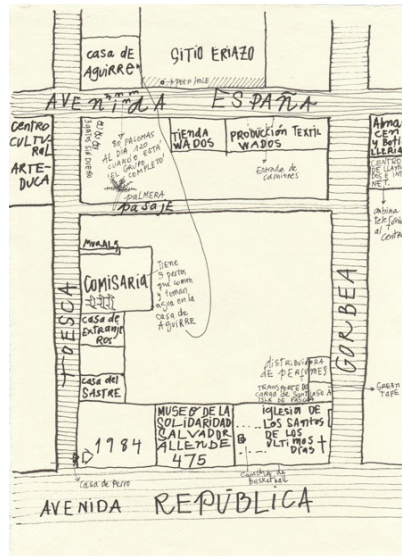 casa de
Aguirre
SITIO ERIAZO
AVENIDA ESPAÑA
CENTRO
CULTU
RAL
ARTE-
DUCA
30 PALOMAS
AL DIA
CUANDO ESTÁ
EL GRUPO
COMPLETO
palmera
TIENDA
WADOS
PRODUCCIÓN TEXTIL
WADOS
Entrada de
camiones
pasaje
MURALS
COMISARIA
Tiene
3 perros
que comen
y toman
agua en la
casa de
AGUIRRE
casa de
EXTRANJE
ROS
casa del
SASTRE
TOESCA
GORBEA
DISTRIBUIDORA
DE PERFUMES
TRANSPORTE DE
carga de SANTIAGO A
ISLA DE PASCUA
GREEN
TAPE
1984
MUSEO DE LA
SOLIDARIDAD
SALVADOR
ALLENDE
475
IGLESIA DE
LOS SANTOS
DE LOS
ÚLTIMOS
DÍAS
casa de perro
cancha de
basketball
AVENIDA REPÚBLICA